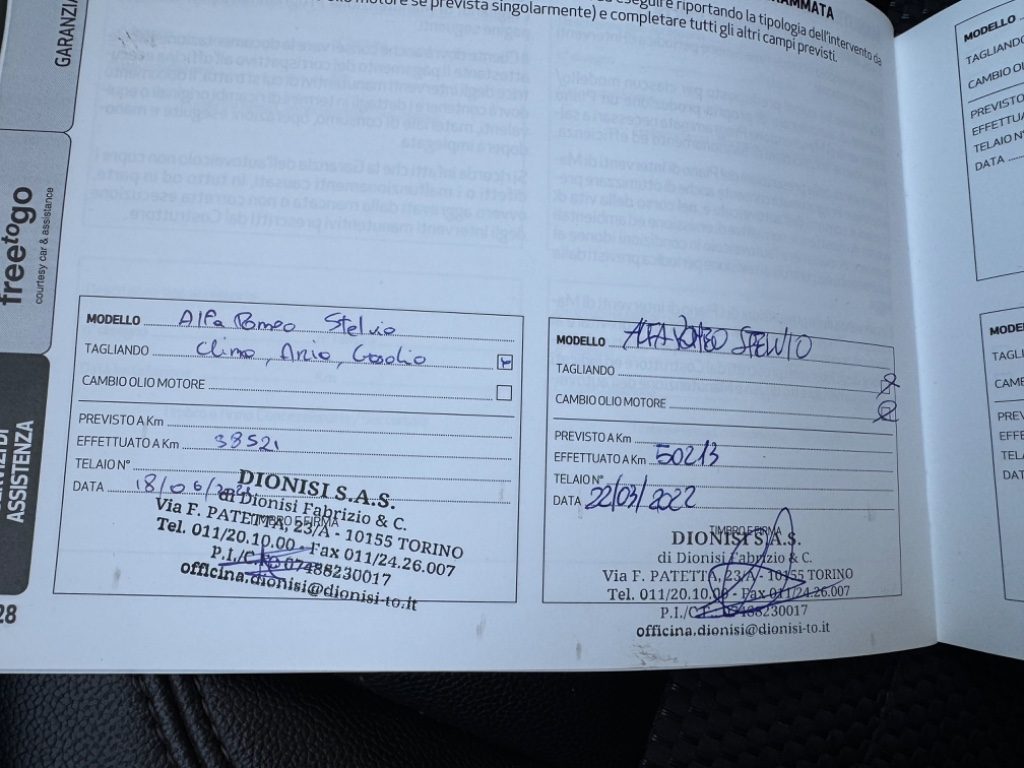 RAMMATA
eseguire riportando la tipologia dell'intervento da
olio motore se prevista singolarmente) e completare tutti gli altri campi previsti.
GARANZIA
freetogo
courtesy car & assistance
SERVIZI DI
ASSISTENZA
28
MODELLO Alfa Romeo Stelvio
TAGLIANDO Clima, Aria, Gasolio
CAMBIO OLIO MOTORE
PREVISTO A Km
EFFETTUATO A Km 38521
TELAIO N°
DATA 18/06/2021
TIMBRO E FIRMA
DIONISI S.A.S.
di Dionisi Fabrizio & C.
Via F. PATETTA, 23/A - 10155 TORINO
Tel. 011/20.10.00 - Fax 011/24.26.007
P.I./C.F. 07488230017
officina.dionisi@dionisi-to.it
MODELLO ALFA ROMEO STELVIO
TAGLIANDO
CAMBIO OLIO MOTORE
PREVISTO A Km
EFFETTUATO A Km 50213
TELAIO N°
DATA 22/03/2022
TIMBRO E FIRMA
DIONISI S.A.S.
di Dionisi Fabrizio & C.
Via F. PATETTA, 23/A - 10155 TORINO
Tel. 011/20.10.00 - Fax 011/24.26.007
P.I./C.F. 07488230017
officina.dionisi@dionisi-to.it
MODELLO
TAGLIANDO
CAMBIO OL
PREVISTO
EFFETTUA
TELAIO N°
DATA
MODE
TAGLI
CAME
PREV
EFFE
TELA
DATA